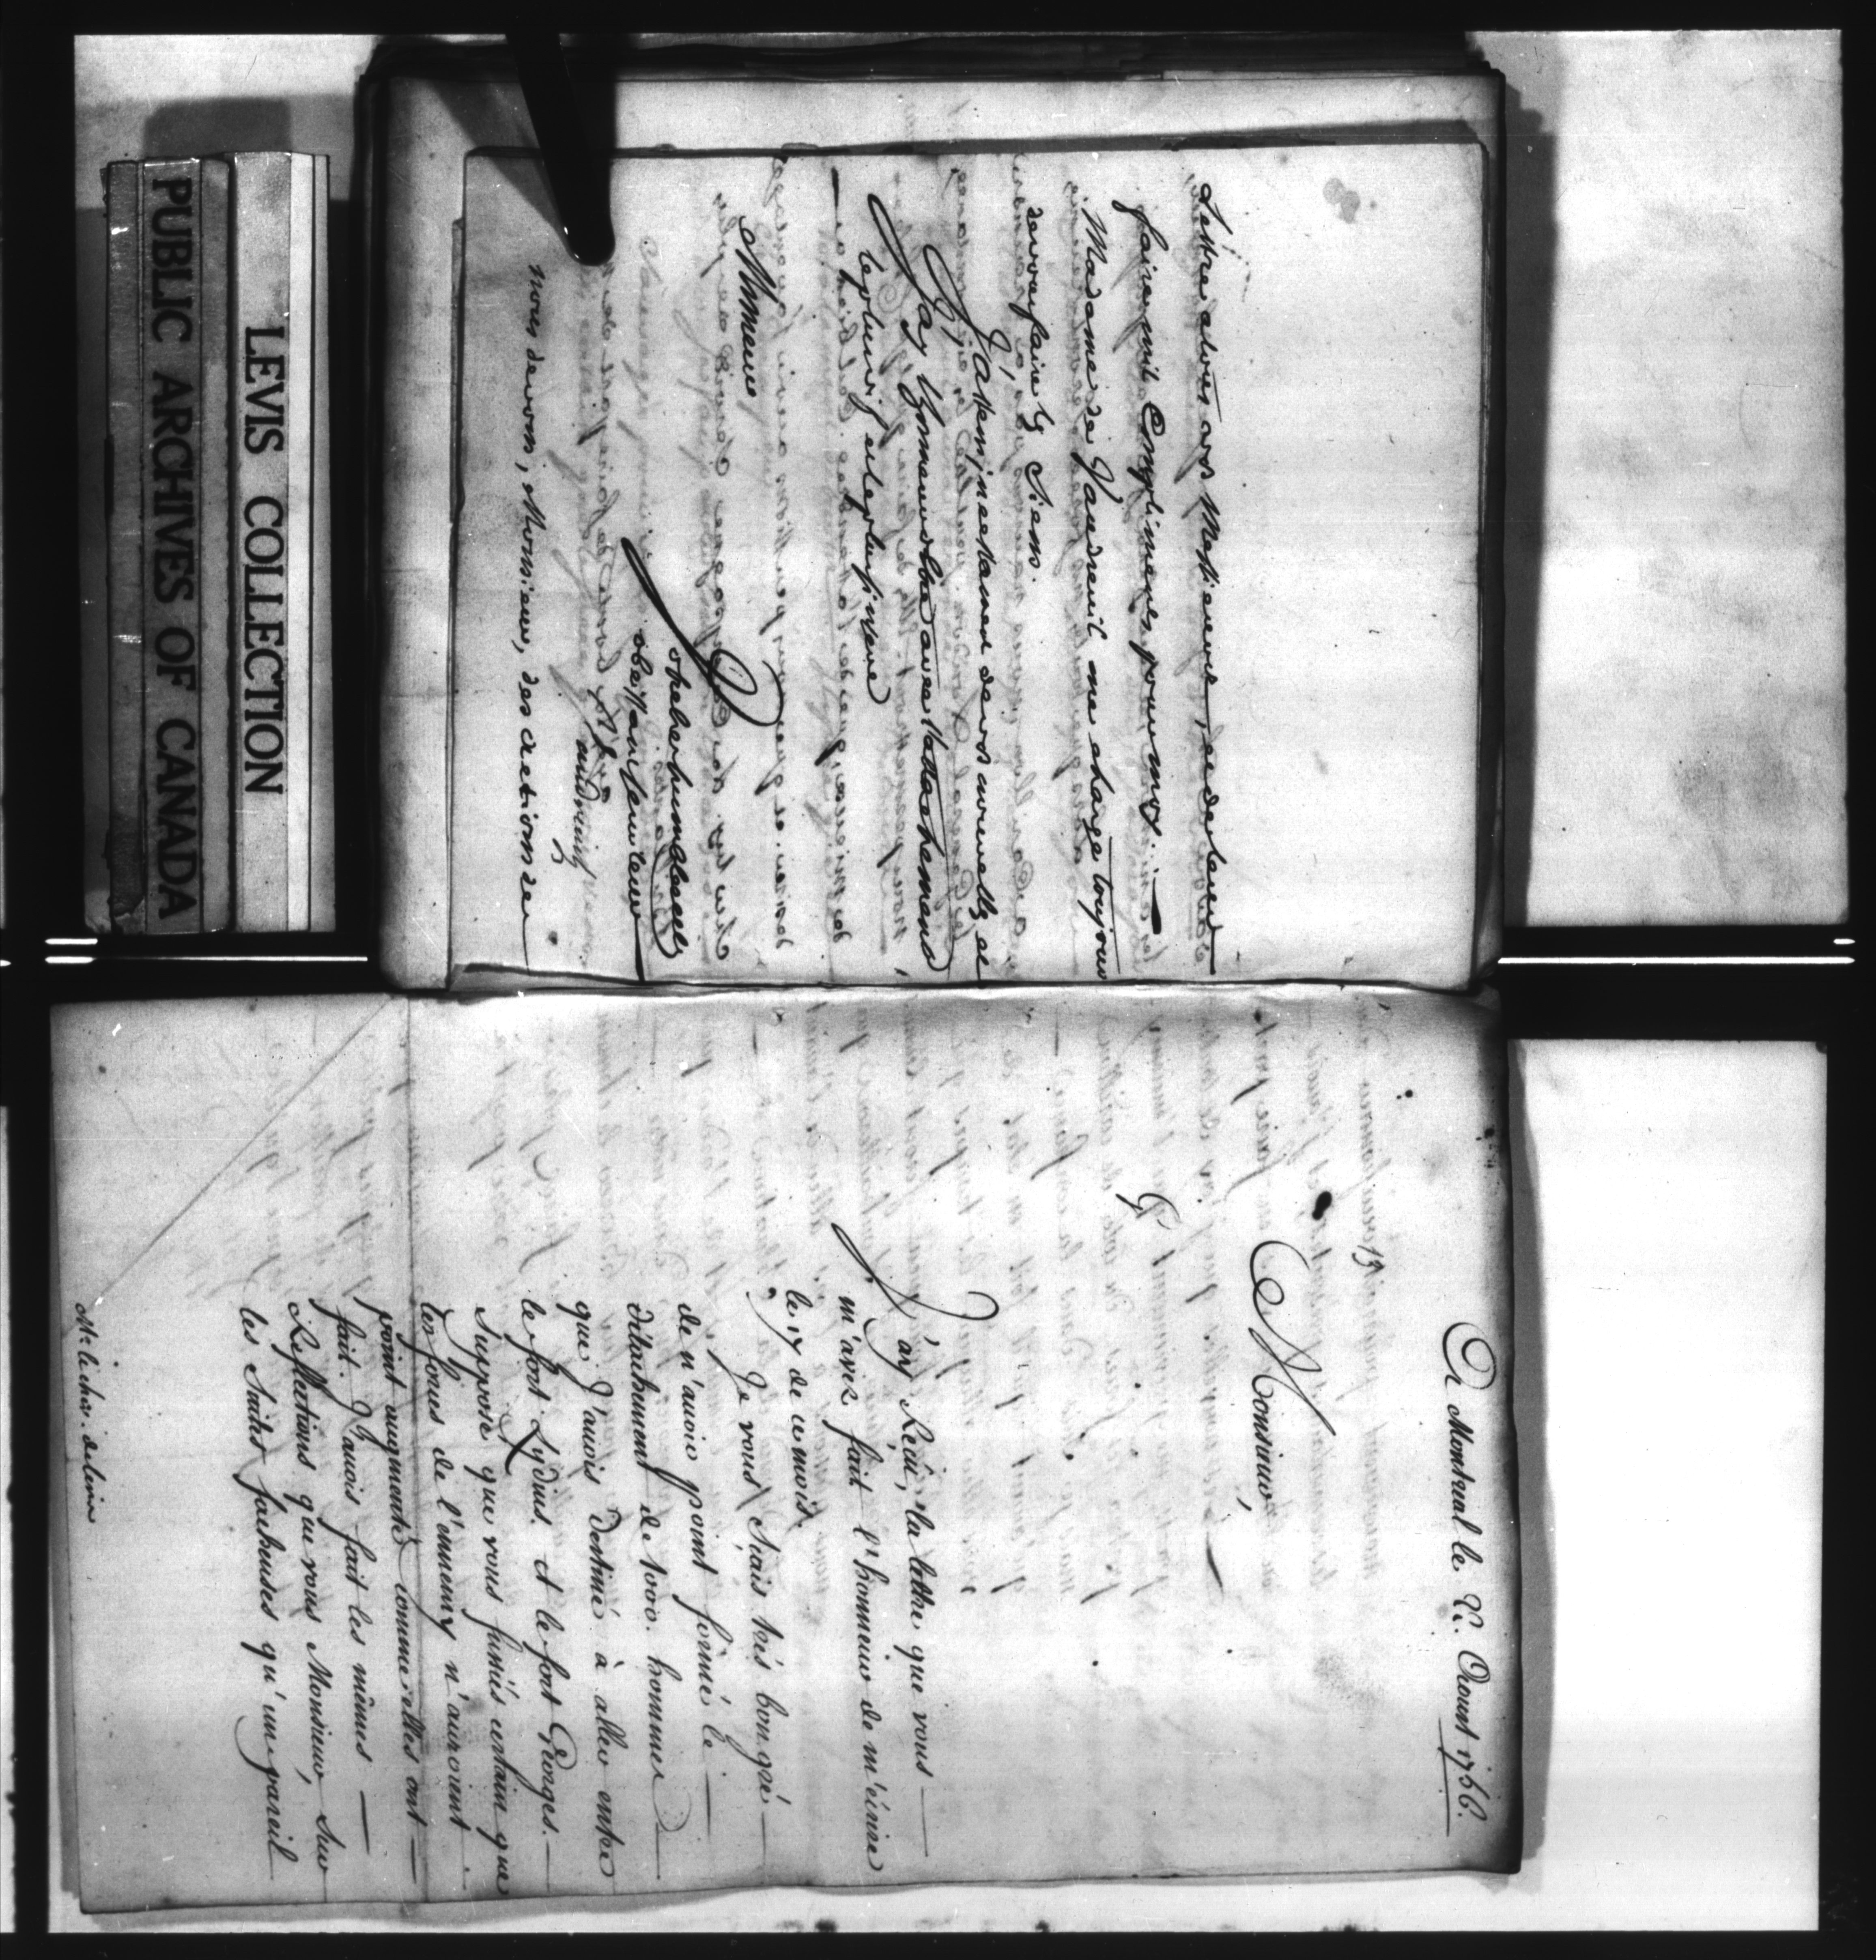 LEVIS COLLECTION
PUBLIC ARCHIVES OF CANADA
faire mil Complimens pour moy.
Madame de Vaudreuil me charge toujours
de vous faire les siens.
J'attens incessament de vos nouvelles et
J'ay l'honneur d'être avec l'attachement
le plus vif et le plus sincere
Monsieur
obeissant serviteur
Vaudreuil
nous devons, Monsieur, des actions de
De Montreal le 20. Aoust 1756.
13
Monsieur,
J'ay Réçû, la lettre que vous
m'avez fait l'honneur de m'écrire
le 17 de ce mois.
Je vous sçais trés bon gré
de n'avoir point formé le
détachement de 1000. hommes
que J'avois destiné à aller entre
le fort Lydius et le fort Georges.
Supposé que vous fussiés certain que
les forces de l'ennemy n'auroient
point augmenté comme elles ont
fait. J'avois fait les mêmes
Reflections que vous Monsieur, sur
les suites facheuses qu'un pareil
Mr. le cher. de Levis